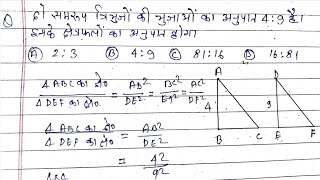 Q दो समरूप त्रिभुजों की भुजाओं का अनुपात 4:9 है।
इनके क्षेत्रफलों का अनुपात होगा
A 2:3 B 4:9 C 81:16 D 16:81
Δ ABC का क्षे० / Δ DEF का क्षे० = AB² / DE² = BC² / EF² = AC² / DF²
Δ ABC का क्षे० / Δ DEF का क्षे० = AB² / DE²
= 4² / 9²
A
4
B C
D
9
E F